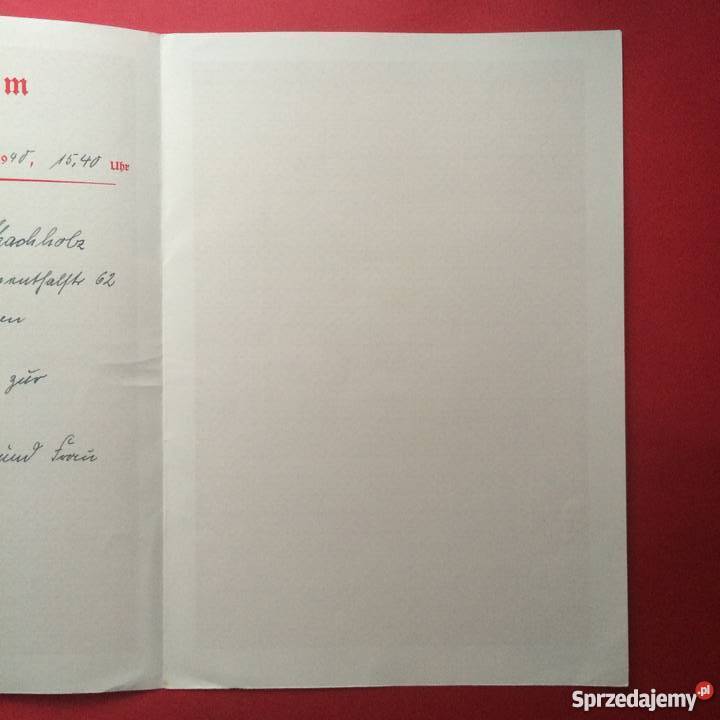 m
940, 15,40 Uhr
achholz
enthalstr 62
en
zur
und Frau
Sprzedajemy.pl